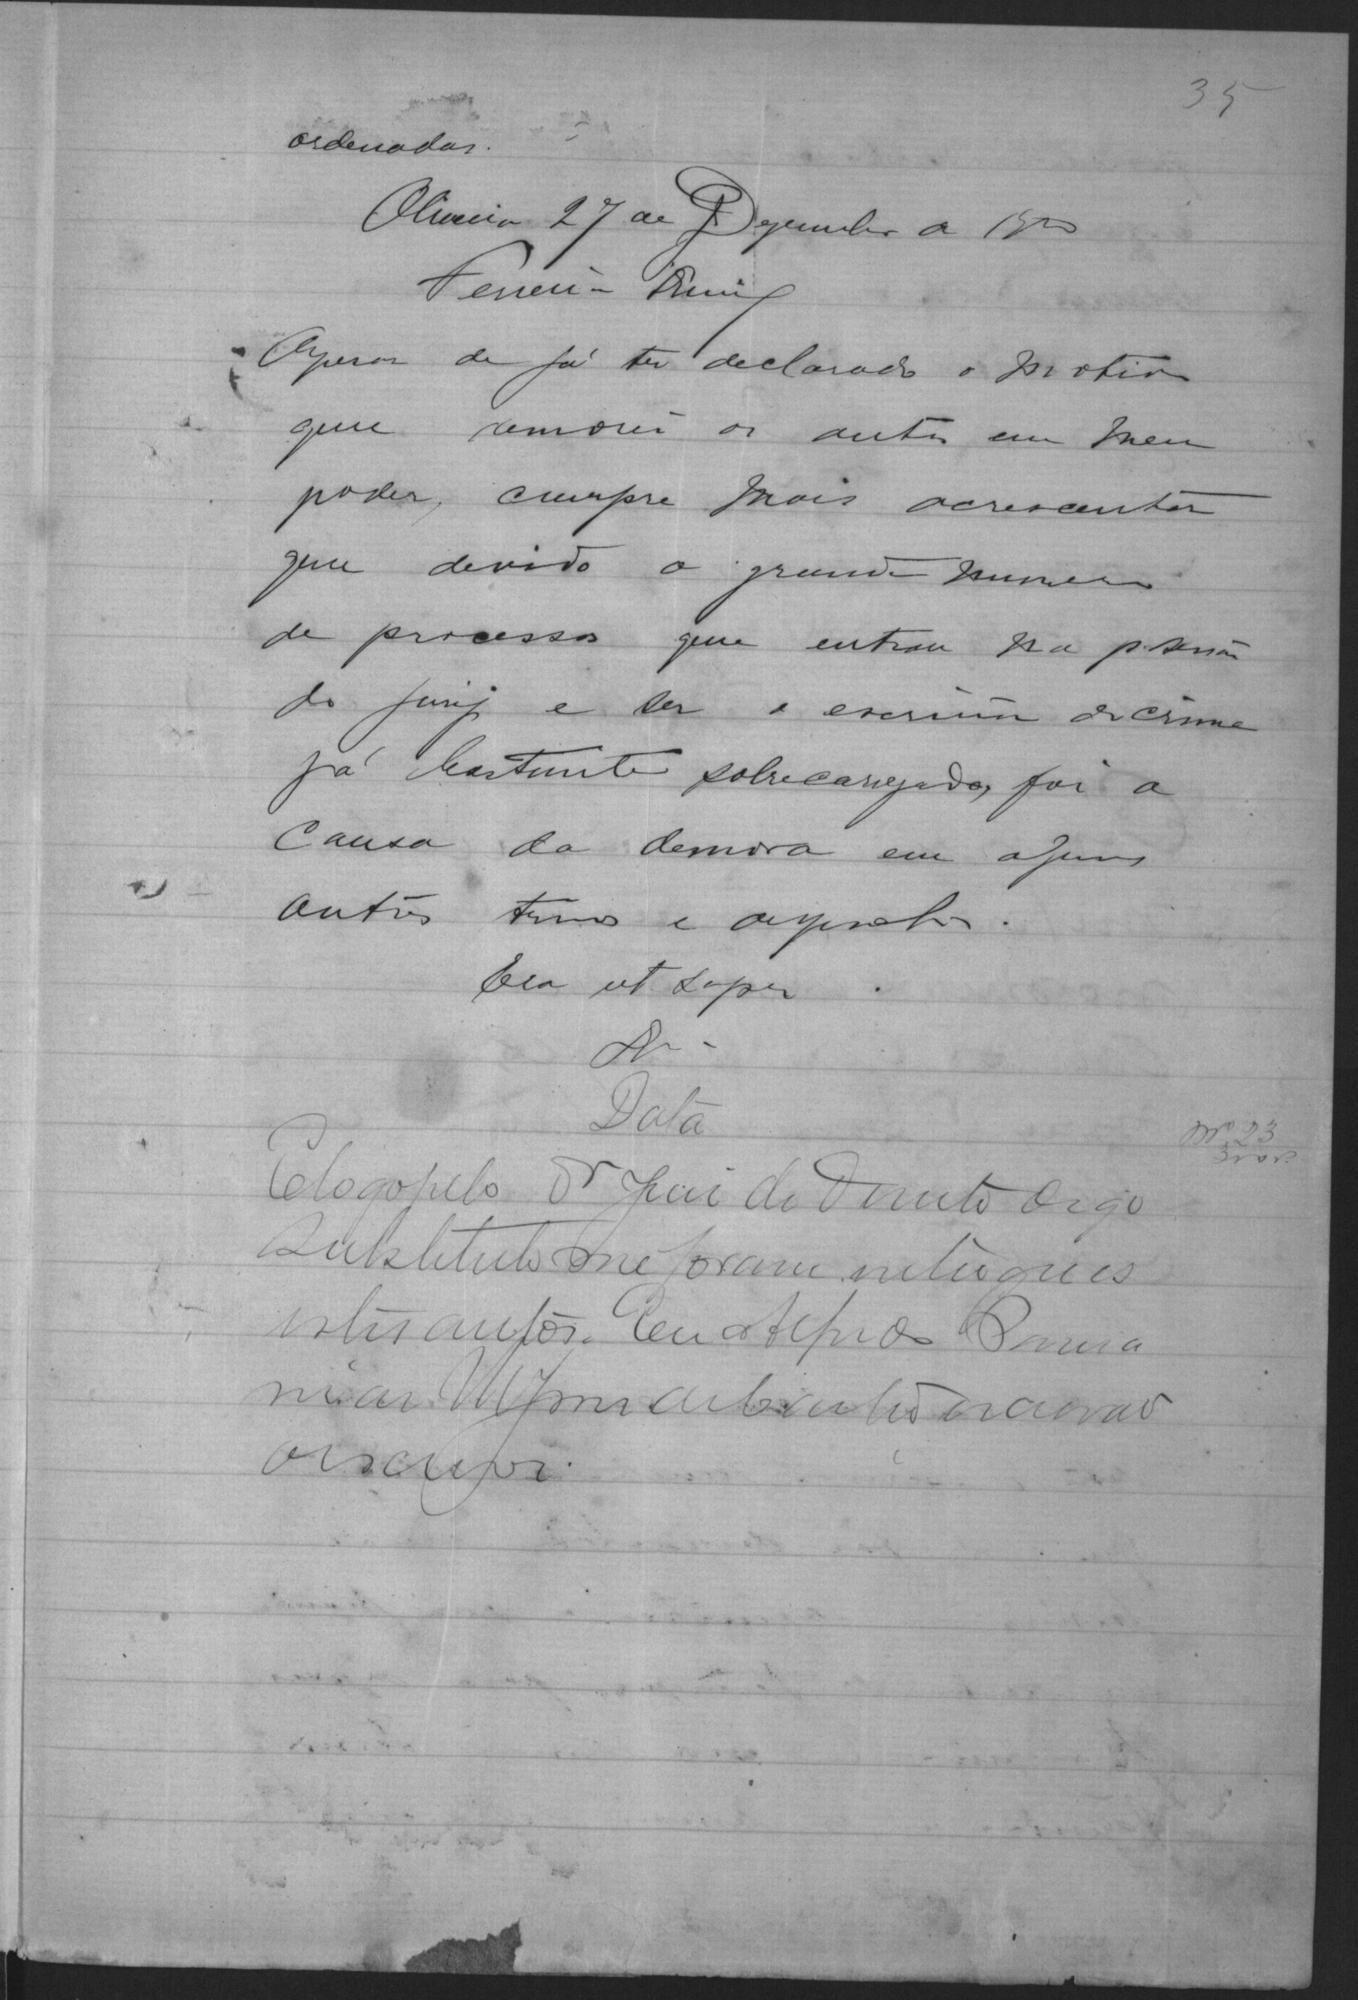 35
ordenadas.
Oliveira 27 de Dezembro de 1900
Ferreira
Apesar de já ter declarado o motivo
que demorei os autos em meu
poder, cumpre mais acrescentar
que devido o grande numero
de processos que entrou na
do jury e ser o escrivão do crime
já bastante sobrecarregado, foi a
causa da demora em alguns
autos termos e despachos.
Era ut supra.
Data
E logo pelo Dr Juiz de Direito digo
Substituto me foram entregues
estes autos. Eu
escrivão
o escrevi.